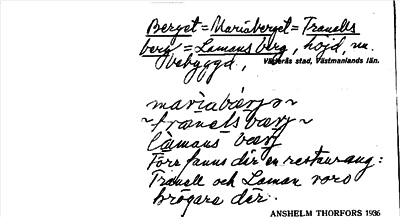 Berget = Mariaberget = Tranells
berg = Lamans berg, höjd, nu
bebyggd.,
Västerås stad, Västmanlands län.
mariabárj ~
~ tranels bærj ~
lamans bærj
Förr fanns där en restaurang:
Tranell och Laman voro
krögare där.
ANSHELM THORFORS 1936